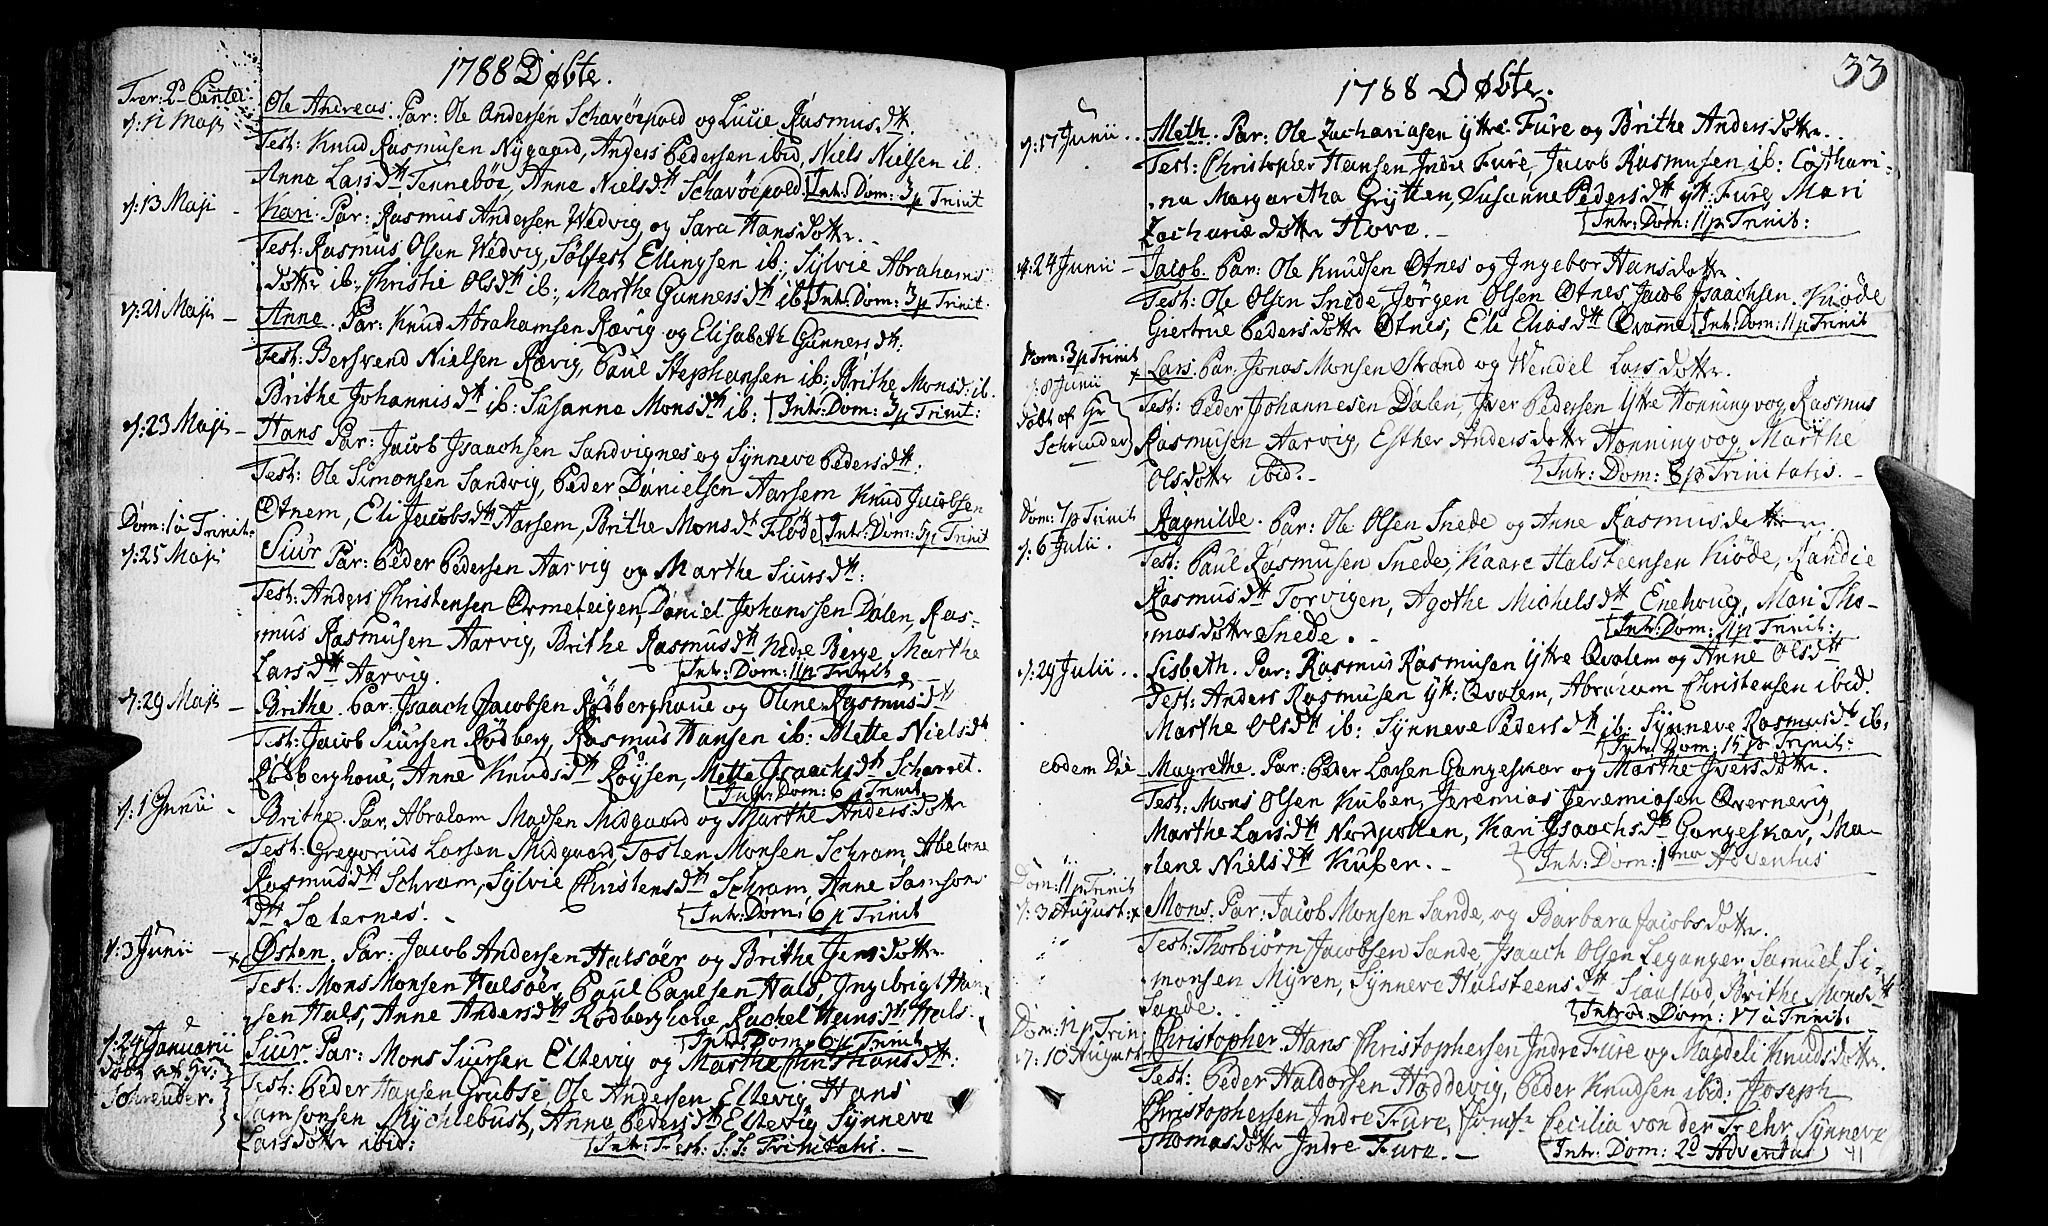 1788 Døbte.
Fer: 2da Pentec:
d: 12 Maji
Ole Andreas. Par: Ole Andersen Schavöepold og Lucie Rasmusdt.
Test: Knud Rasmusen Nygaard, Anders Pedersen ibid, Niels Nielsen ib.
Anna Larsdtt Tenneböe, Anne Nielsdtt Schavöepold. Intr: Dom: 3 p Trinit
d: 13 Maji -
Kari. Par: Rasmus Andersen Wedvig og Sara Hansdotter.
Test: Rasmus Olsen Wedvig, Sölfest Ellingsen ib:, Sylvie Abrahams
dotter ib:, Christie Olsdtt ib:, Marthe Gunnersdtt ib. Intr: Dom: 3 p Trinit.
d: 21 Maji -
Anne. Par: Knud Abrahamsen Rævig og Elisabeth Gunnersdtt:
Test: Bersvend Nielsen Rævig, Paul Stephansen ib: Brithe Monsd: ib.
Brithe Johannisdtt ib: Susanna Monsdtt ib: Intr: Dom: 3 p Trinit:
d: 23 Maji -
Hans Par: Jacob Isaachsen Sandvignes og Synneve Pedersdtt:
Test: Ole Simonsen Sandvig, Peder Danielsen Aarsem Knud Jacobsen
Otnem, Eli Jacobsdtt Aarsem, Brithe Monsdt Flöde Intr: Dom: 5 p Trinit
Dom: 1 a Trinit.
d: 25 Maji
Siur Par: Peder Pedersen Aarvig og Marthe Siursdt:
Test: Anders Christensen Ormeteigen, Daniel Johanssen Dalen, Ras-
mus Rasmusen Aarvig, Brithe Rasmusdtt Nedre Berge, Marthe
Larsdtt Aarvig. Intr: Dom: 11 p Trinit
d: 29 Maji -
Brithe. Par. Isaach Jacobsen Rödberghoue og Oline Rasmusdtt
Test: Jacob Siursen Rödberg, Rasmus Hansen ib: Mette Nielsdtt
Rödberghoue, Anne Knudsdtt Röysen, Mette Isaachsdtt Scharvet.
Intr: Dom: 6 p Trinit
d: 1 Junii -
Brithe. Par. Abraham Madsen Midgaard og Marthe Andersdotter
Test: Gregorius Larsen Midgaard, Tosten Monsen Schram, Abelone
Rasmusdtt Schram, Sylvie Christensdtt Schram, Anne Samsons
dtt Sæternes. - Intr: Dom: 6 p Trinit
d: 3 Junii - x
Østen. Par: Jacob Andersen Halsöer og Brithe Jensdotter
Test: Mons Monsen Halsöer, Paul Paulsen Hals, Ingebrigt Han
sen Hals, Anne Andersdtt Rödberghoue, Rachel Hansdtt Hals.
Intr: Dom: 6 p Trinit
d: 24 Januarii
Döbt af Hr:
Schreuder.
Siur Par: Mons Siursen Eltevig og Marthe Christiansdtt:
Test: Peder Hansen Grubse, Ole Andersen Eltevig Hans
Samsonsen Mychlebust, Anna Pedersdtt Eltevig Synneve
Larsdotter ibid: Intr: Fest: S: S: Trinitatis. -
1788 Døbte.
33
d: 17 Junii ..
Meth. Par: Ole Zachariasen Yttre Fure og Brithe Andersdotter.
Test: Christopher Hansen Indre Fure, Jacob Rasmusen ib: Cathari-
na Margaretha Grytten, Susanne Pedersdtt ytt: Fure, Mari
Zachariædotter Hove. - Intr: Dom: 11 p Trinit:
d: 24 Junii -
Jacob. Par: Ole Knudsen Otnes og Ingebor Hansdotter
Test: Ole Olsen Snede, Jörgen Olsen Otnes, Jacob Isaachsen Kiöde
Giertrue Pedersdotter Otnes, Eli Eliasdtt Qvamme Intr: Dom: 11 p Trinit
Dom: 3 p Trinit
d: 8 Junii x
Döbt af Hr
Schreuder
Lars. Par. Jonas Monsen Strand og Wendel Larsdotter.
Test: Peder Johannesen Dalen, Iver Pedersen Yttre Honningvog Rasmus
Rasmusen Aarvig, Esther Andersdotter Honningvog, Marthe
Olsdotter ibid. - Intr: Dom: 8 p Trinitatis. -
Dom: 7 p Trinit
d: 6 Julii.
Ragnilde. Par: Ole Olsen Snede og Anne Rasmusdotter.
Test: Paul Rasmusen Snede, Kaare Halsteensen Kiöde, Randie
Rasmusdtt Torvigen, Agothe Michelsdtt Enehoug, Mari Tho-
masdotter Snede. - Intr: Dom: 11 p Trinit:
d: 29 Julii ..
Lisbeth. Par: Rasmus Rasmusen Yttre Qvalem og Anne Olsdtt
Test: Anders Rasmusen Ytt: Qvalem, Abraham Christensen ibid.
Marthe Olsdtt ib: Synneve Pedersdtt ib: Synneve Rasmusdtt ib.
Intr: Dom: 15 p Trinit:
eodem Die
Magrethe. Par: Peder Larsen Gangeskar og Marthe Iversdotter.
Test: Mons Olsen Kuben, Jeremias Jeremiasen Overnevig,
Marthe Larsdtt Nordpollen, Kari Isaachsdtt Gangeskar, Ma-
lene Nielsdtt Kuben. - Intr: Dom: 1ma Adventus
Dom: 11 p Trinit
d: 3 August: x
Mons. Par: Jacob Monsen Sande, og Barbara Jacobsdotter.
Test: Thorbiörn Jacobsen Sande, Isaach Olsen Leganger, Samuel Si-
monsen Myren, Synneve Halsteensdtt Siaastad, Brithe Monsdtt
Sande. Introd: Dom: 17 a Trinit:
Dom: 12 p Trin:
d: 10 August
Christopher. Hans Christophersen Indre Fure og Magdeli Knudsdotter.
Test: Peder Haldorsen Hoddevig, Peder Knudsen ibid: Joseph
Christophersen Indre Fure, Jomfr Cecilia von der Fehr, Synneve
Thomasdotter Indre Fure. - Intr: Dom: 2d Adventus
41